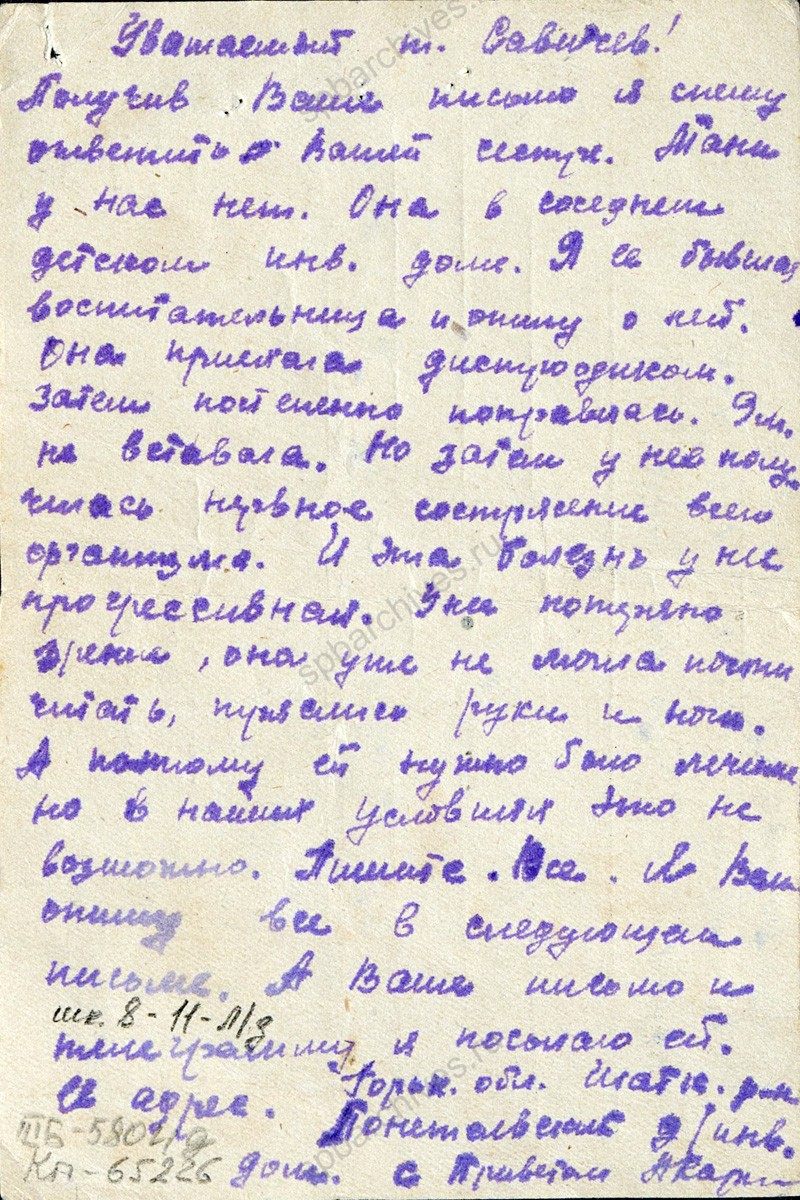 Уважаемый т. Савичев!
Получив Ваше письмо я спешу
ответить о Вашей сестре. Тани
у нас нет. Она в соседнем
детском инв. доме. Я ее бывшая
воспитательница и опишу о ней.
Она приехала дистрофиком.
Затем постепенно поправилась.
не вставала. Но затем у нее полу-
чилось нервное сотрясение всего
организма. И эта болезнь у нее
прогрессивная. Уже потеряно
зрение, она уже не могла почти
читать, тряслись руки и ноги.
А поэтому ей нужно было лечение
но в наших условиях это не
возможно. Пишите. Все. Я Вам
опишу все в следующем
письме. А Ваше письмо и
шк. 8-11-Л/д
телеграмму я посылаю ей.
Ее адрес. Горьк. обл. Шатк. р-н
IIБ-580 1/д
Понетаевский д/инв.
Кп-65226 дом. с Приветом
spbarchives.ru
spbarchives.ru
spbarchives.ru